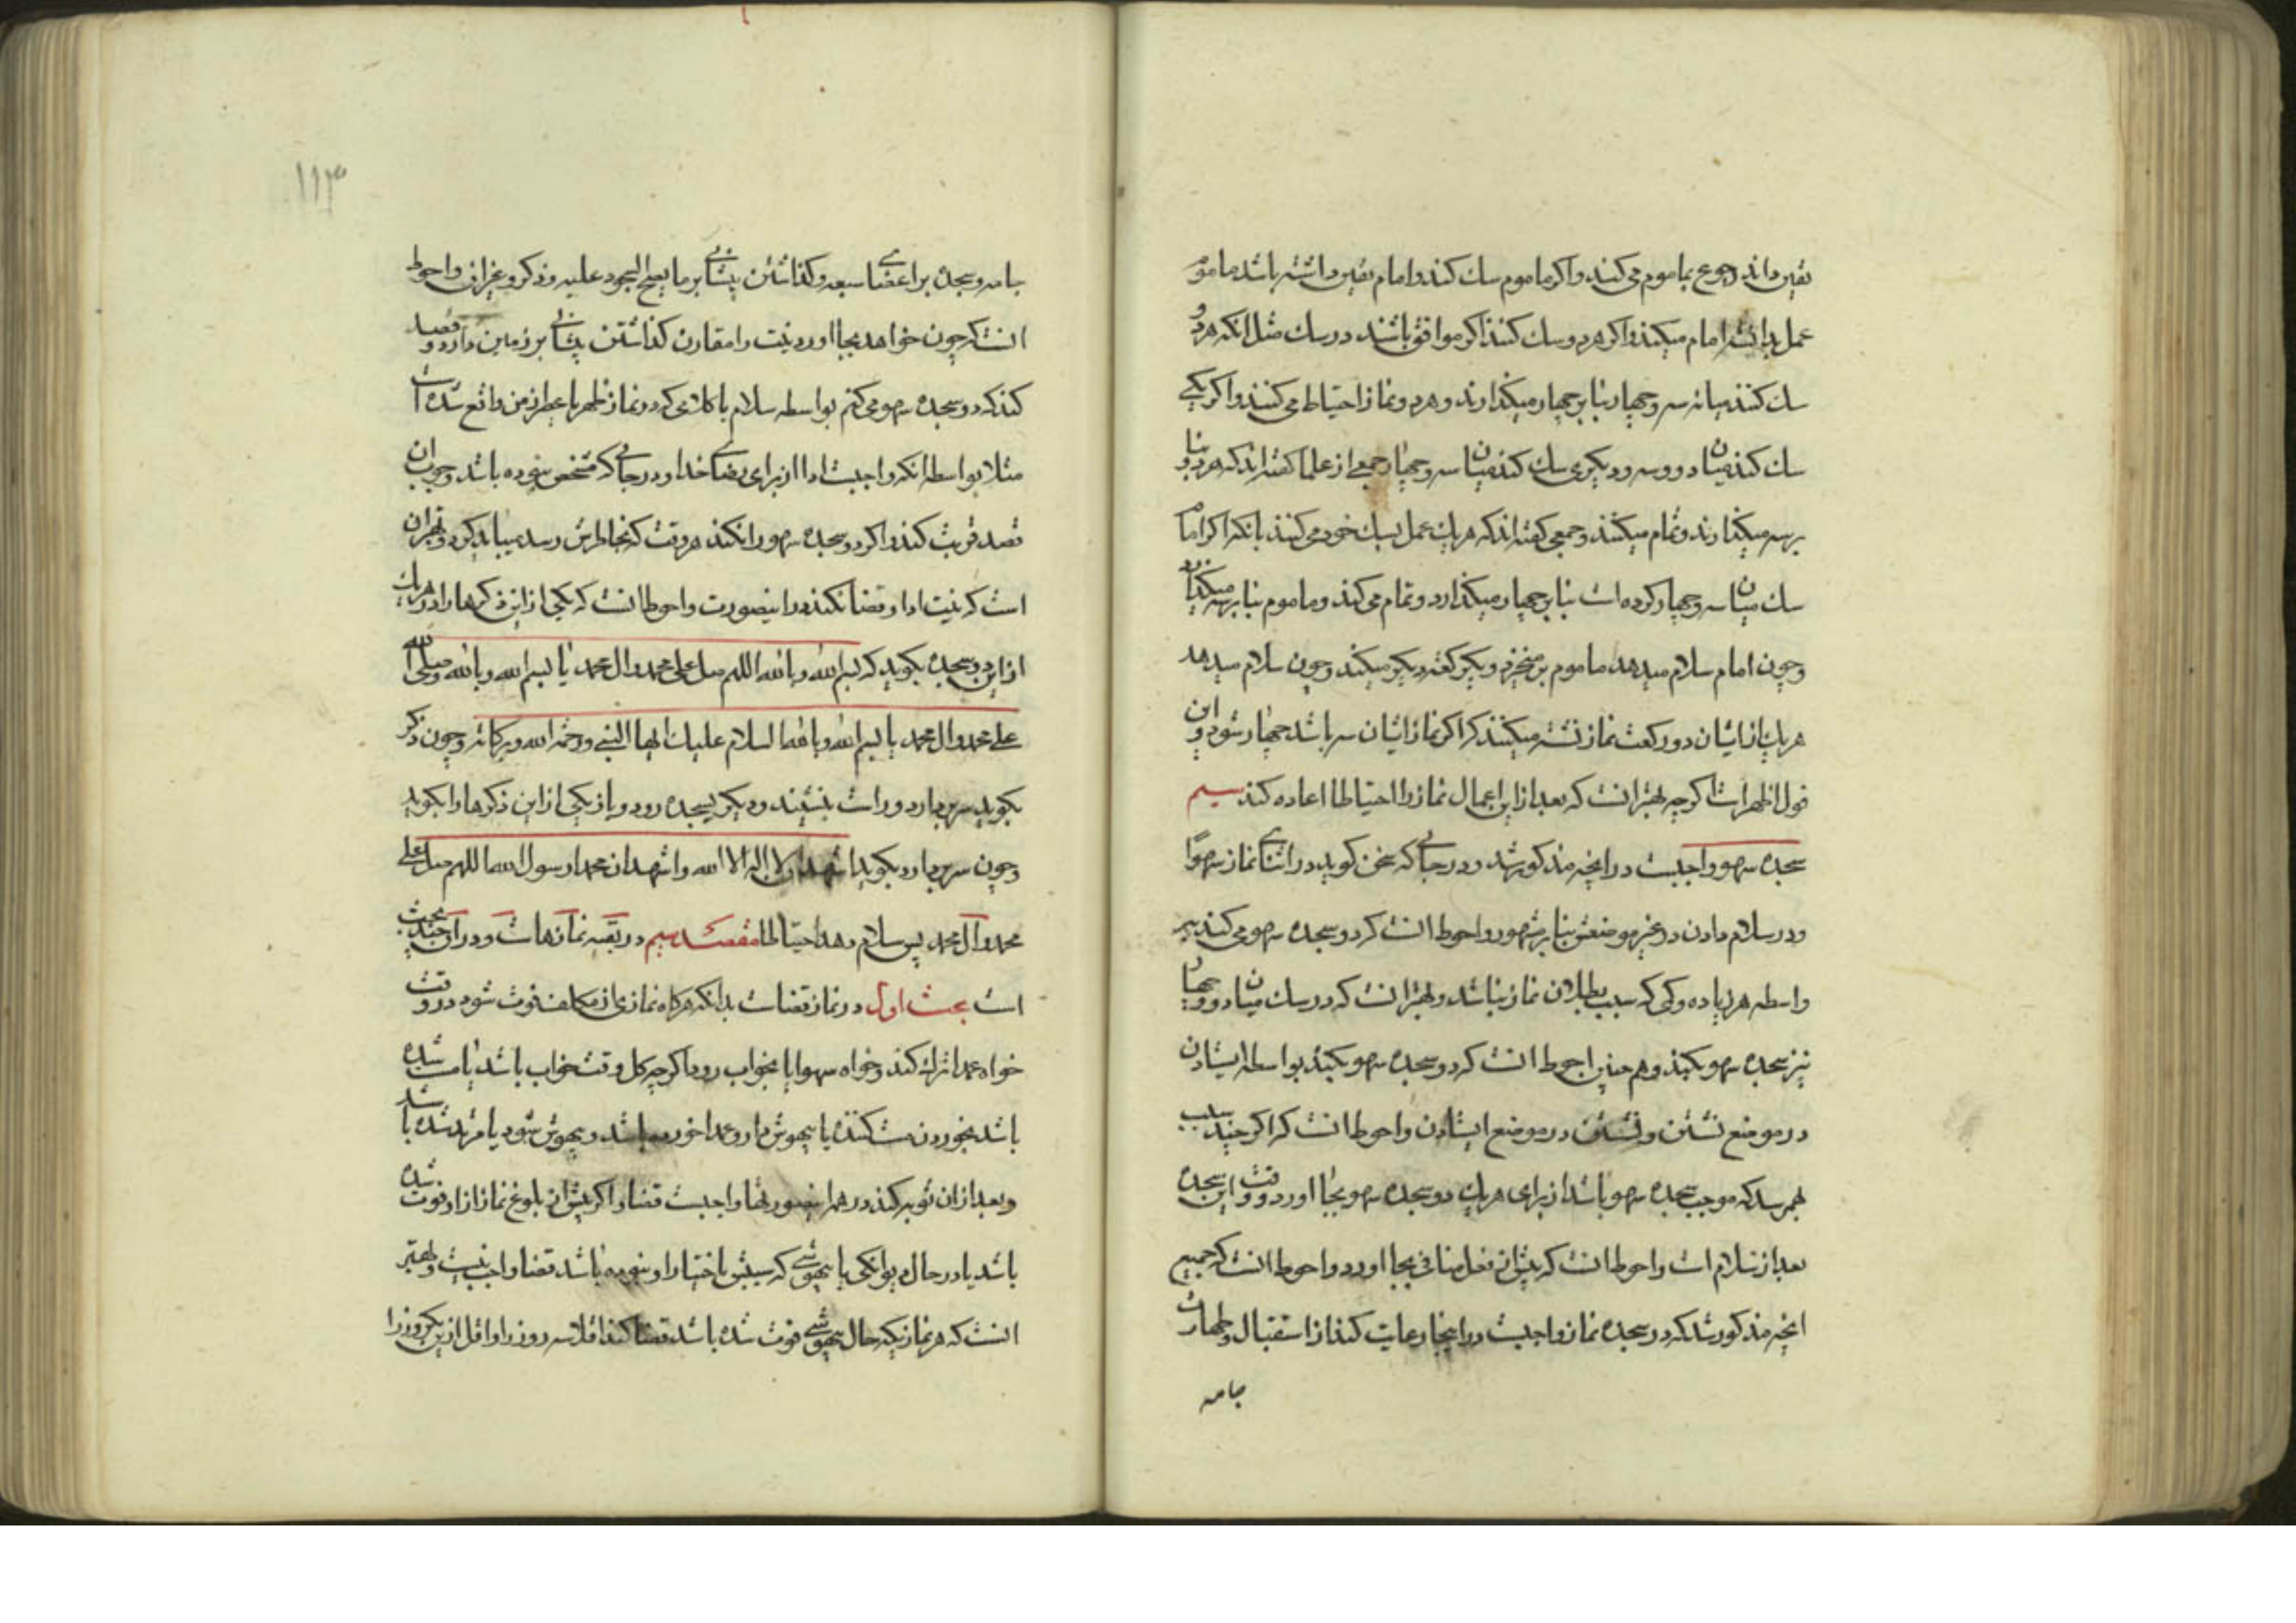 یقین داند رجوع بماموم می کند و اکر ماموم شک کند و امام یقین داشته باشد ماموم
عمل بدانش امام میکند و اکر هر دو شک کنند اکر موافق باشند در شک مثل انکه هر دو
شک کنند میانه سه و چهار بنا بر چهار میکذارند و هر دو نماز احتیاط می کنند و اکر یکی
شک کند میان دو و سه و دیکری شک کند میان سه و چهار جمعی از علما کفته اند که هر دو بنا
بر سه میکذارند و تمام میکنند و جمعی کفته اند که هر یک عمل بشک خود می کنند بانکه اکر امام
شک میان سه و چهار کرده است بنا بر چهار میکذارد و تمام می کند و ماموم بنا بر سه میکذارد
و چون امام سلام میدهد ماموم بر میخیزد و یکرکعت دیکر میکند و چون سلام میدهد
هر یک از ایشان دو رکعت نماز نشسته میکنند که اکر نماز ایشان سه باشد چهار شود و این
قول اظهر است اکرچه بهتر انست که بعد از این اعمال نماز را احتیاطا اعاده کند سیم
سجده سهو واجبست در انچه مذکور شد و در جائی که سخن کوید در اثنای نماز سهوًا
و در سلام دادن در غیر موضعش بنا بر مشهور و احوط انست که دو سجده سهو می کند بهر
واسطه هر زیاده و کمی که سبب بطلان نماز نباشد و بهتر انست که در شک میان دو و چهار
نیز سجده سهو بکند و هم چنین احوط انست که دو سجده سهو بکند بواسطه ایستادن
در موضع نشستن و نشستن در موضع ایستادن و احوط انست که اکر چند سبب
بهم رسد که موجب سجده سهو باشد از برای هر یک دو سجده سهو بجا اورد و وقت این سجده
بعد از سلام است و احوط انست که پیش از فعل منافی بجا اورد و احوط انست که جمیع
انچه مذکور شد که در سجده نماز واجبست در اینجا رعایت کند از استقبال و طهارت
جامه
۱۱۳
جامه و سجده بر اعضای سبعه و کذاشتن پیشانی بر ما یصح السجود علیه و ذکر و غیر ان و احوط
انست که چون خواهد بجا اورد نیت را مقارن کذاشتن پیشانی بر زمین دارد و قصد
کند که دو سجده سهو می کنم بواسطه سلام یا کلامی که در نماز ظهر یا عصر از من واقع شده است
مثلا بواسطه انکه واجبست ادا از برای رضای خدا و در جائی که مشخص نبوده باشد وجوب ان
قصد قربت کند و اکر دو سجده سهو را نکند هر وقت که بخاطرش رسد میباید کرد و بهتر ان
است که نیت ادا و قضا نکند در اینصورت و احوط انست که یکی از این ذکرها را در هر یک
از این دو سجده بکوید که بسم الله و بالله اللهم صل علی محمد و ال محمد یا بسم الله و بالله و صلی الله
علی محمد و ال محمد یا بسم الله و بالله السلام علیک ایها النبی و رحمة الله و برکاته و چون ذکر
بکوید سر بردارد و راست بنشیند و دیکر بسجده رود و باز یکی از این ذکرها را بکوید
و چون سر بردارد بکوید اشهد ان لا اله الا الله و اشهد ان محمدا رسول الله اللهم صل علی
محمد و آل محمد پس سلام دهد احتیاطا مقصد سیم در بقیه نمازهاست و در ان چند بحث
است بحث اول در نماز قضاست بدانکه هرکاه نمازی از مکلف فوت شود در وقت
خواه عمدا ترک کند و خواه سهوا یا بخواب رود اکرچه کل وقت خواب باشد یا مست شده
باشد بخوردن مست کننده یا بیهوش دارو عمدا خورده باشد و بیهوش شود یا مرتد شده باشد
و بعد از ان توبه کند در همه اینصورتها واجبست قضا و اکر پیش از بلوغ نماز از او فوت شده
باشد یا در حال دیوانکی یا بیهوشی که سببش باختیار او نبوده باشد قضا واجب نیست و بهتر
انست که هر نمازیکه حال بیهوشی فوت شده باشد قضا کند اقلا سه روز را و اقل از ان یکروز را